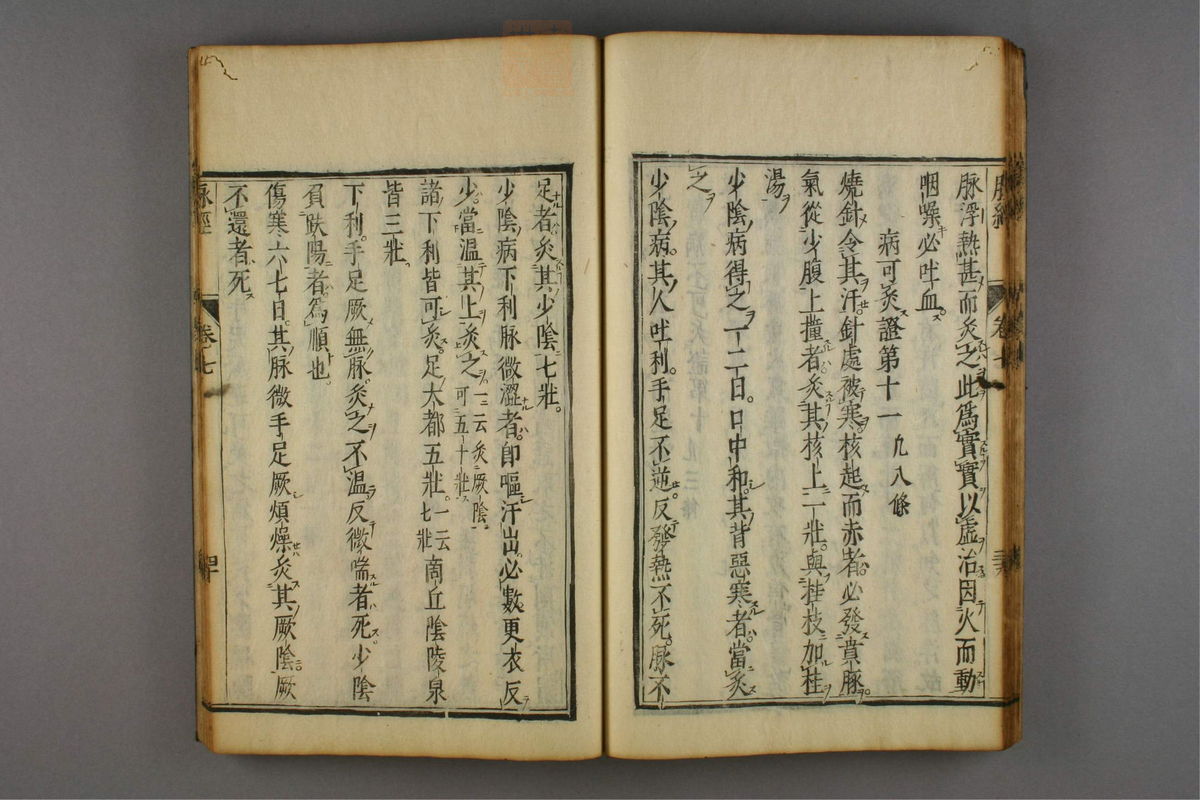 脉浮熱甚而灸之此爲實實以虛治因火而動
咽喿必吐血
病可灸證第十一 凡八條
燒針令其汗針處被寒核起而赤者必發賁豚
氣從少腹上撞者灸其核上一壯與桂枝加桂
湯
少陰病得之一二日口中和其背惡寒者當灸
之
少陰病其人吐利手足不逆反發熱不死脉不
足者灸其少陰七壯
少陰病下利脉微澀者卽嘔汗出必數更衣反
少當温其上灸之 一云灸厥陰可五十壯
諸下利皆可灸足大都五壯 一云七壯 商丘陰陵泉
皆三壯
下利手足厥無脉灸之不温反微喘者死少陰
負趺陽者爲順也
傷寒六七日其脉微手足厥煩燥灸其厥陰厥
不還者死
脉經
卷七